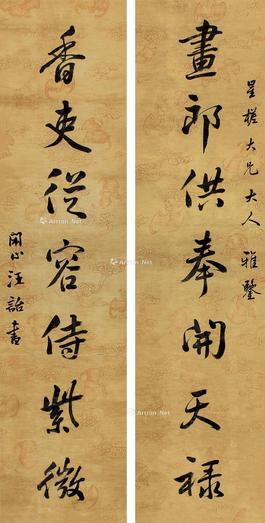 星槎大兄大人雅鑒
畫郎供奉開天祿
香吏從容侍紫微
閏心汪詒書
Artron.Net